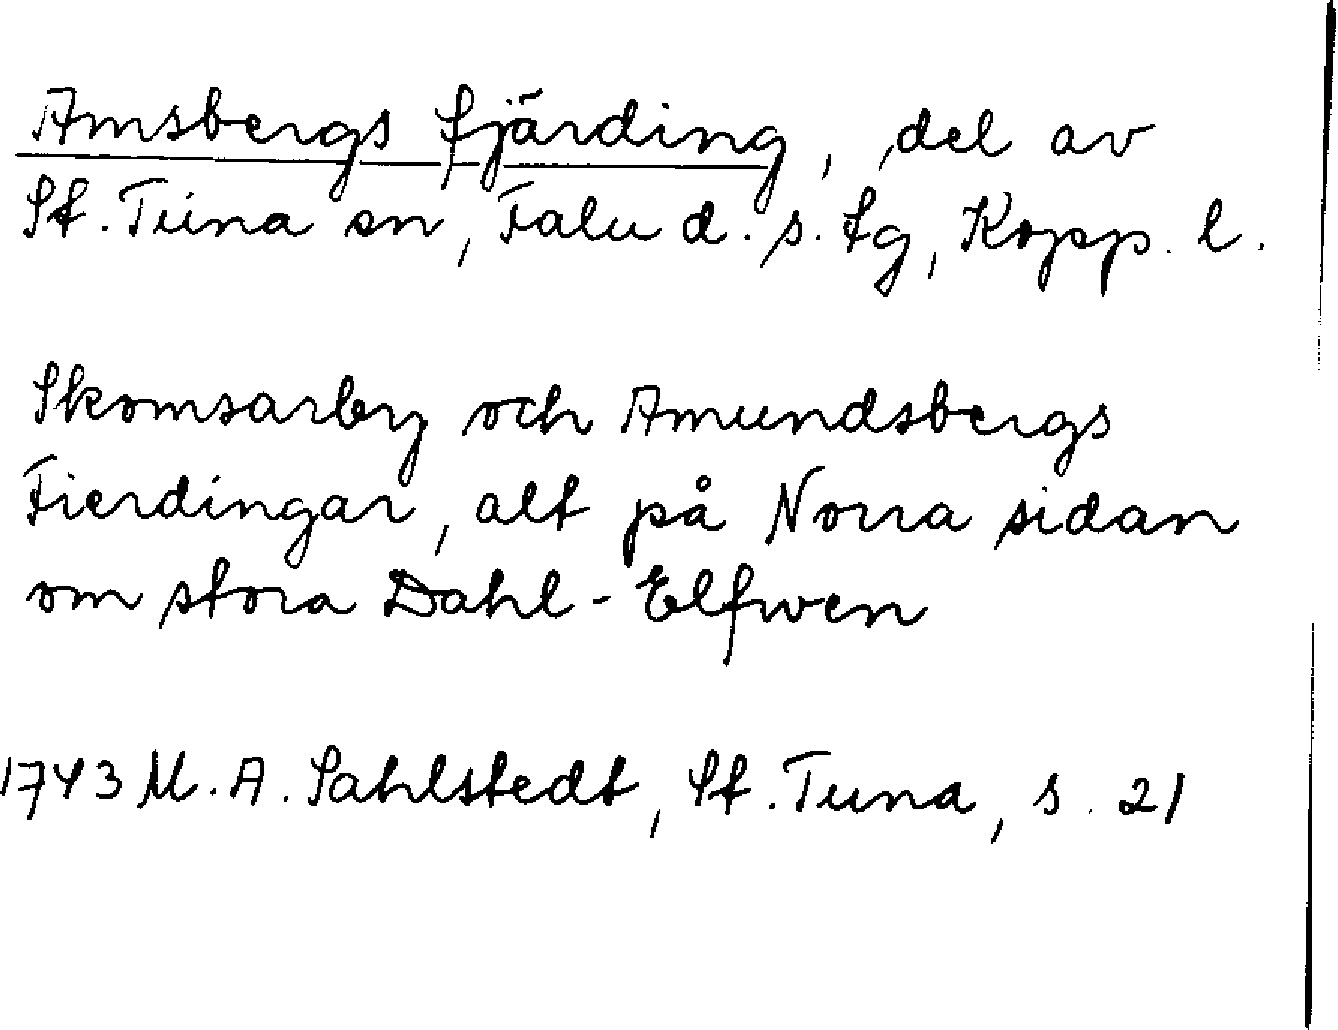 Amsbergs fjärding, del av
St. Tuna sn, Falu d. s. tg, Kopp. l.
Skomsarby och Amundsbergs
Fierdingar, alt på Norra sidan
om stora Dahl-Elfwen
1743 M. A. Sahlstedt, St. Tuna, s. 21